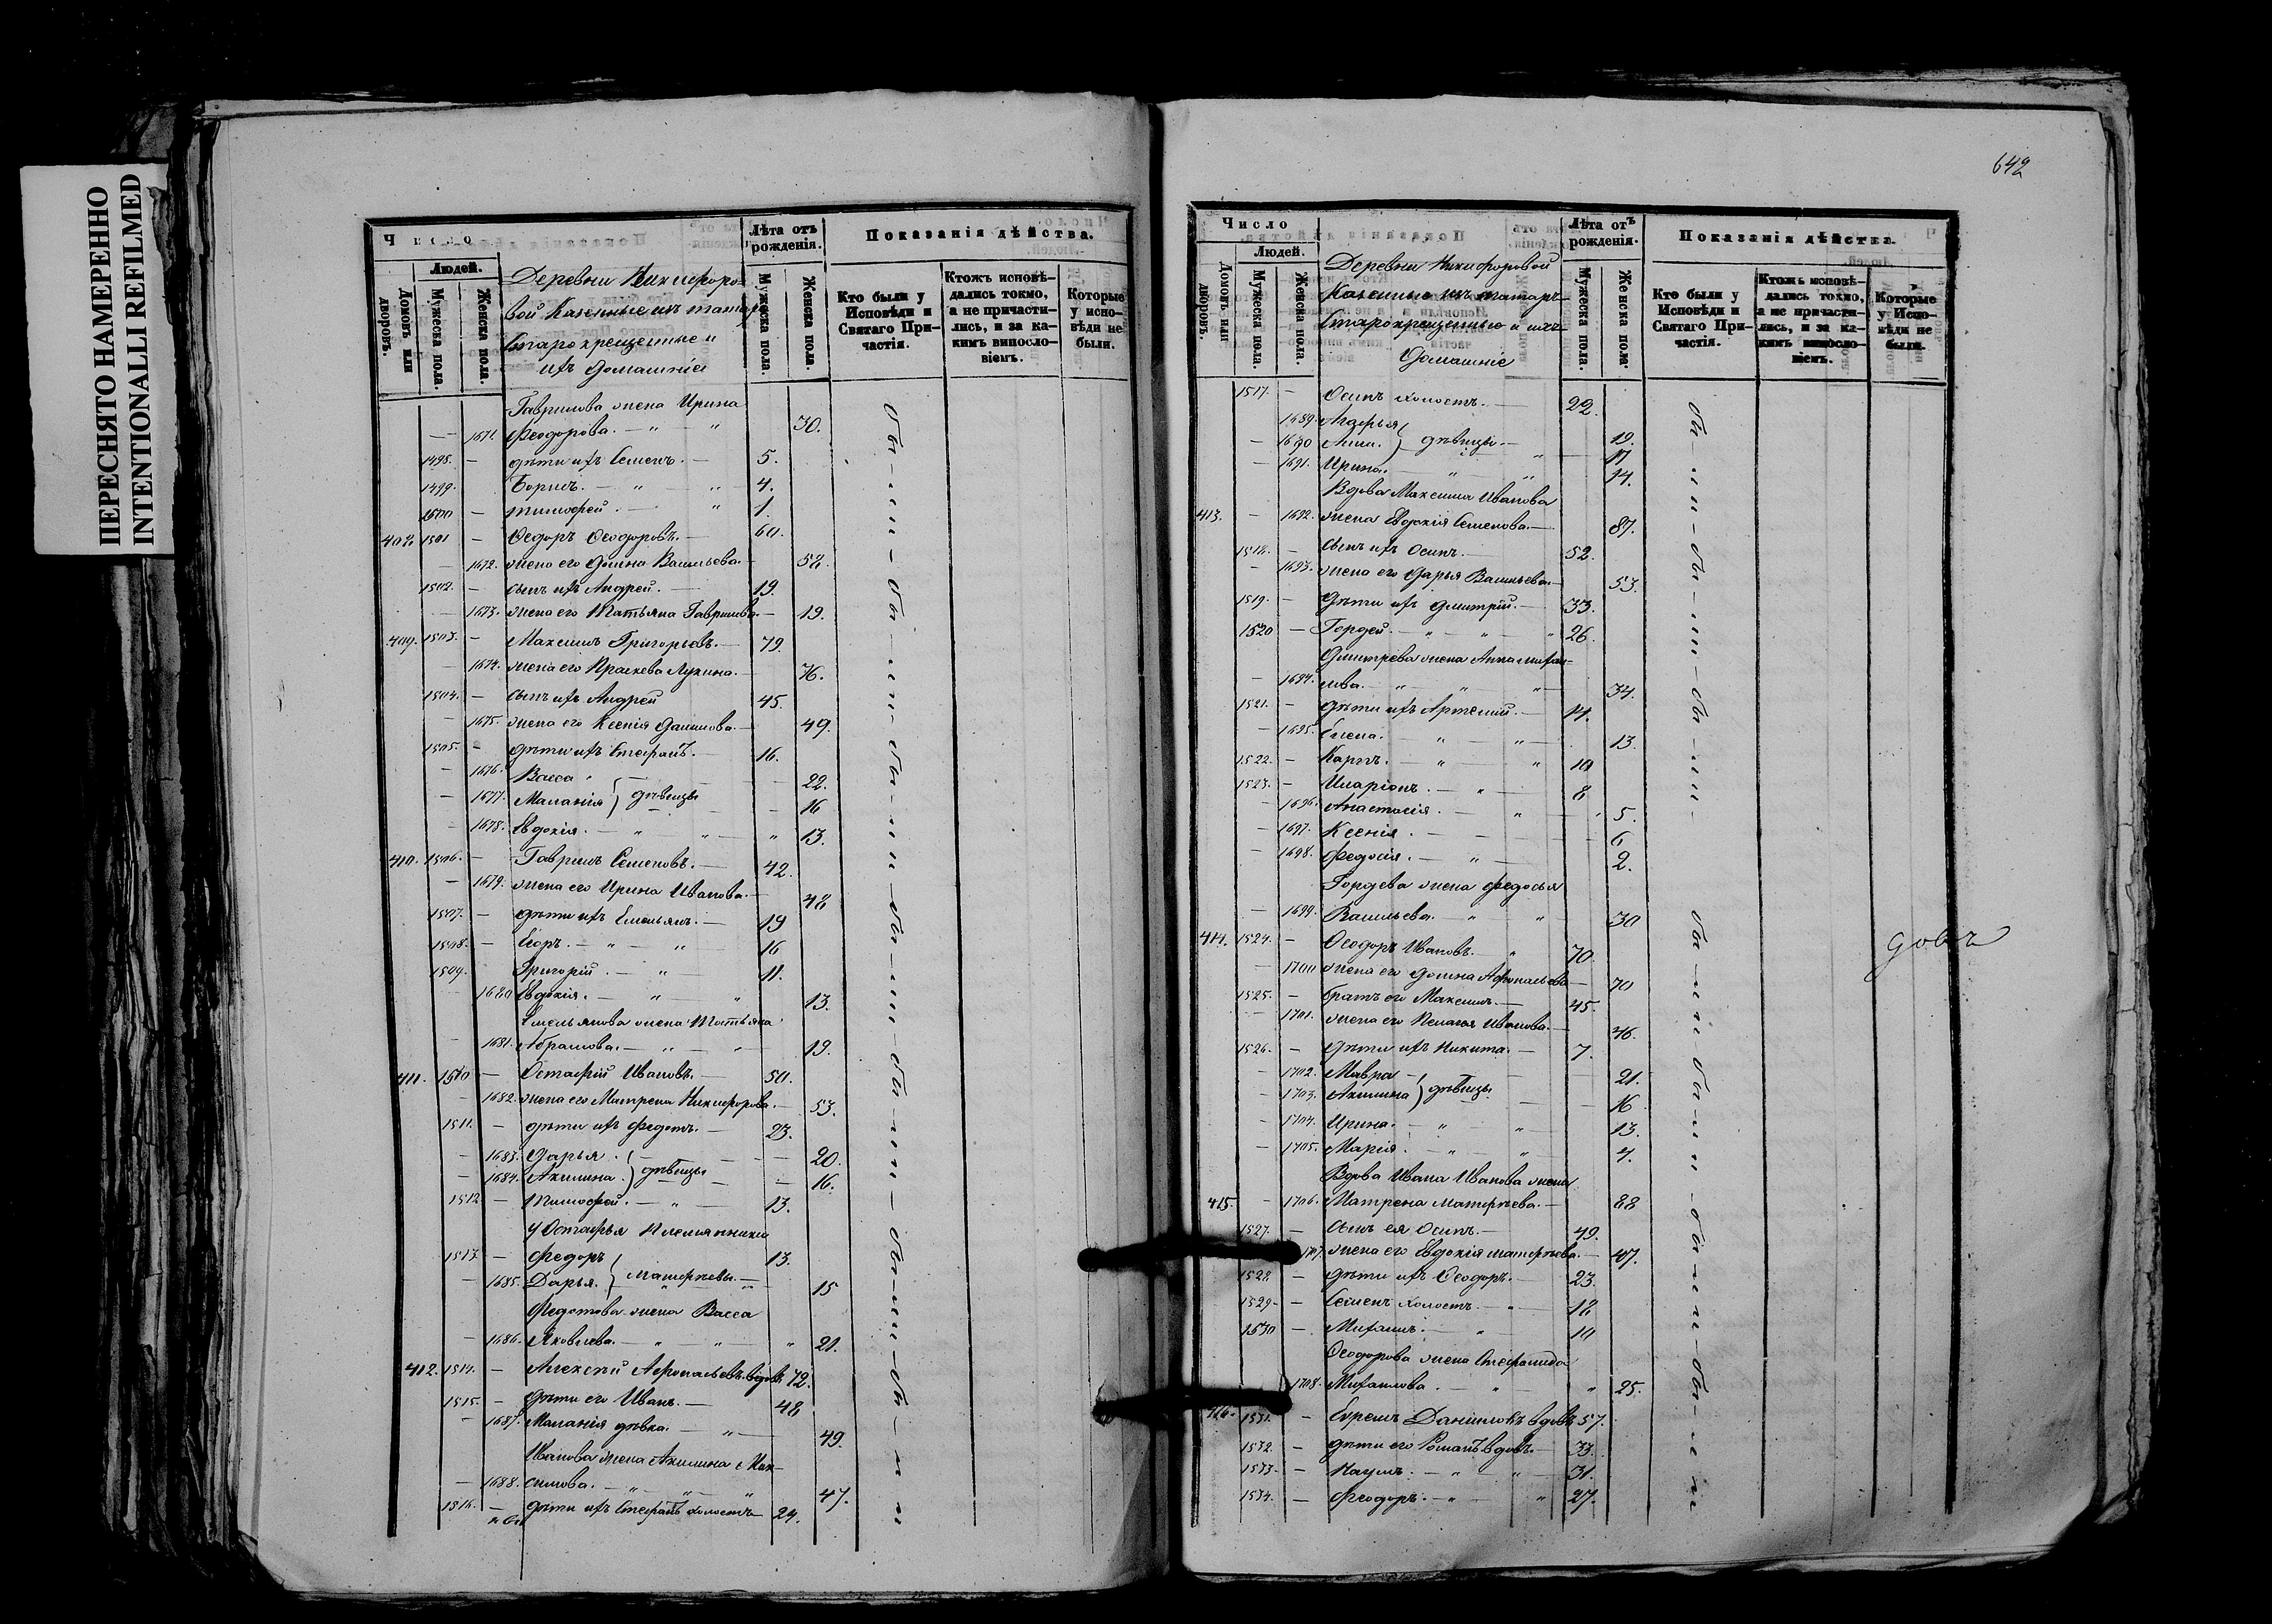 ПЕРЕСНЯТО НАМЕРЕННО
INTENTIONALLI REFILMED
Число
Людей.
Домовъ или дворовъ.
Мужеска пола.
Женска пола.
Деревни Никифоро-
вой Казенные изъ татаръ
Старокрещенные и
ихъ домашніе
Лѣта отъ рожденія.
Мужеска пола.
Женска пола.
Показанія дѣйства.
Кто были у Исповѣди и Святаго При-
частія.
Ктожъ исповѣ-
дались токмо,
а не причасти-
лись, и за ка-
кимъ виносло-
віемъ.
Которые
у испо-
вѣди не
были.
Гаврилова жена Ирина
— 1671. Феодорова. — " — " 30.
1498. — дѣти ихъ Семенъ. — 5.
1499. Борисъ. — " — " 4.
1500 — Тимофей. — " 1.
408. 1501 — Ѳедоръ Ѳеодоровъ. — 60.
— 1672. жена его Домна Васильева. — 58.
1502. — сынъ ихъ Андрей. — 19.
— 1673. жена его Татьяна Гаврилова. — 19.
409. 1503. — Максимъ Григорьевъ. — 79.
— 1674. жена его Праскева Лукина. — 76.
1504. — сынъ ихъ Андрей 45.
— 1675. жена его Ксенія Данилова. — 49.
1505. — дѣти ихъ Стефанъ. — 16.
— 1676. Васса — 22.
— 1677. Маланія } дѣвицы — 16
— 1678. Евдокія. — " — " — " 13.
410. 1506. — Гаврилъ Семеновъ. — 42.
— 1679. жена его Ирина Иванова. — 48
1507. — дѣти ихъ Емельянъ. — 19
1508. — Егоръ. — " — " 16
1509. Григорій. — " — 11.
— 1680 Евдокія. — " — " 13.
Емельянова жена Татьяна
— 1681. Абрамова. — " — " 19.
411. 1510 — Остафій Ивановъ. — 50.
— 1682. жена его Матрена Никифорова. — 53.
1511. — дѣти ихъ Федотъ. — 23.
— 1683. Дарья. — 20.
— 1684. Акилина. } дѣвицы — 16.
1512 — Тимофей. — " — 13.
У Остафья племянники
1513. — Федоръ 13.
— 1685. Дарья. } Матфѣевы. — 15
Федотова жена Васса
— 1686. Яковлева. — " — " — " 21.
412. 1514. — Алексѣй Афонасьевъ вдовъ 72.
1515. — дѣти его Иванъ. — 48
— 1687. Маланія дѣвка. — " — 49.
Иванова жена Акилина Мак-
— 1688. симова. — " — " — " 47.
1516. — дѣти ихъ Стефанъ холостъ 24.
бы-ли-бы-ли-бы-ли-бы-ли-бы-ли-бы-ли-бы-ли
642
Число
Людей.
Домовъ или дворовъ.
Мужеска пола.
Женска пола.
Деревни Никифоровой
Казенные изъ татаръ
Старокрещенные и ихъ
домашніе
Лѣта отъ рожденія.
Мужеска пола.
Женска пола.
Показанія дѣйства.
Кто были у Исповѣди и Святаго При-
частія.
Ктожъ исповѣ-
дались токмо,
а не причасти-
лись, и за ка-
кимъ винослo-
віемъ.
Которые
у Испо-
вѣди не
были.
1517. — Осипъ холостъ. — 22.
1689. Агафья 19.
— 1690 Анна. } дѣвицы. — 17
— 1691. Ирина. — " — " 14.
Вдова Максима Иванова
413. — 1692. жена Евдокія Семенова. — 87.
1518. — сынъ ихъ Осипъ. — 52.
— 1693. жена его Дарья Васильева. — 53.
1519. — дѣти ихъ Дмитрій. — 33.
1520 — Гордей. — " — " — " 26.
Дмитрева жена Анна Михаи-
— 1694. лова. — " — " — " 34.
1521. — дѣти ихъ Артемий. — 14.
— 1695. Елена. — " — " — 13.
1522. — Карпъ. — " — " 10
1523. — Иларіонъ. — " — 8
— 1696. Анастасія. — " — " 5.
— 1697. Ксенія. — 6
— 1698. Федосія. — " — 2.
Гордева жена Федосья
— 1699. Васильева. — " — " 30
414. 1524. — Ѳеодоръ Ивановъ. — " 70.
— 1700 жена его Домна Афонасьева — 70
1525. — братъ его Максимъ. — 45.
— 1701. жена его Пелагея Иванова. — 46.
1526. — дѣти ихъ Никита. — 7.
— 1702. Мавра — 21.
— 1703. Акилина } дѣвицы. — 16
— 1704. Ирина. — " — " — 13.
— 1705. Марія. — " — " 4.
Вдова Ивана Иванова жена
415. — 1706. Матрена Матфѣева. — 88
1527. — сынъ ея Осипъ. — 49.
1707. жена его Евдокія Матфѣева. — 47.
1528. — дѣти ихъ Ѳеодоръ. — 23.
1529. — Семенъ холостъ. — " — 18
1530 — Михаилъ. — " — 10
Ѳеодорова жена Стефанида
1708. Михаилова. — " — " 25.
416. 1531. — Ефремъ Даниловъ вдовъ 57.
1532. — дѣти его Романъ вдовъ. — 33.
1533. — Наумъ. — " — " — 31.
1534. — Феодоръ. — " — " 27.
бы-ли-бы-ли-бы-ли-
бы-ли бы-ли-бы-ли-бы-ли